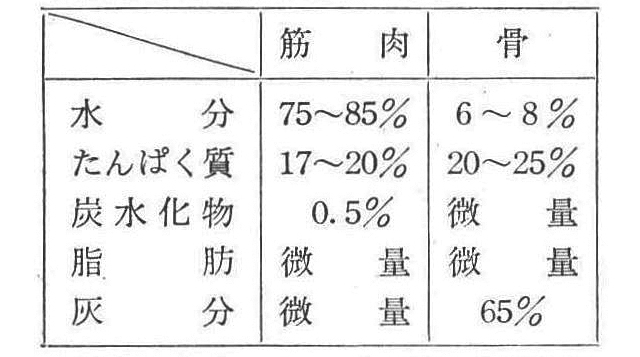 筋肉 骨
水分 75～85% 6～8%
たんぱく質 17～20% 20～25%
炭水化物 0.5% 微量
脂肪 微量 微量
灰分 微量 65%